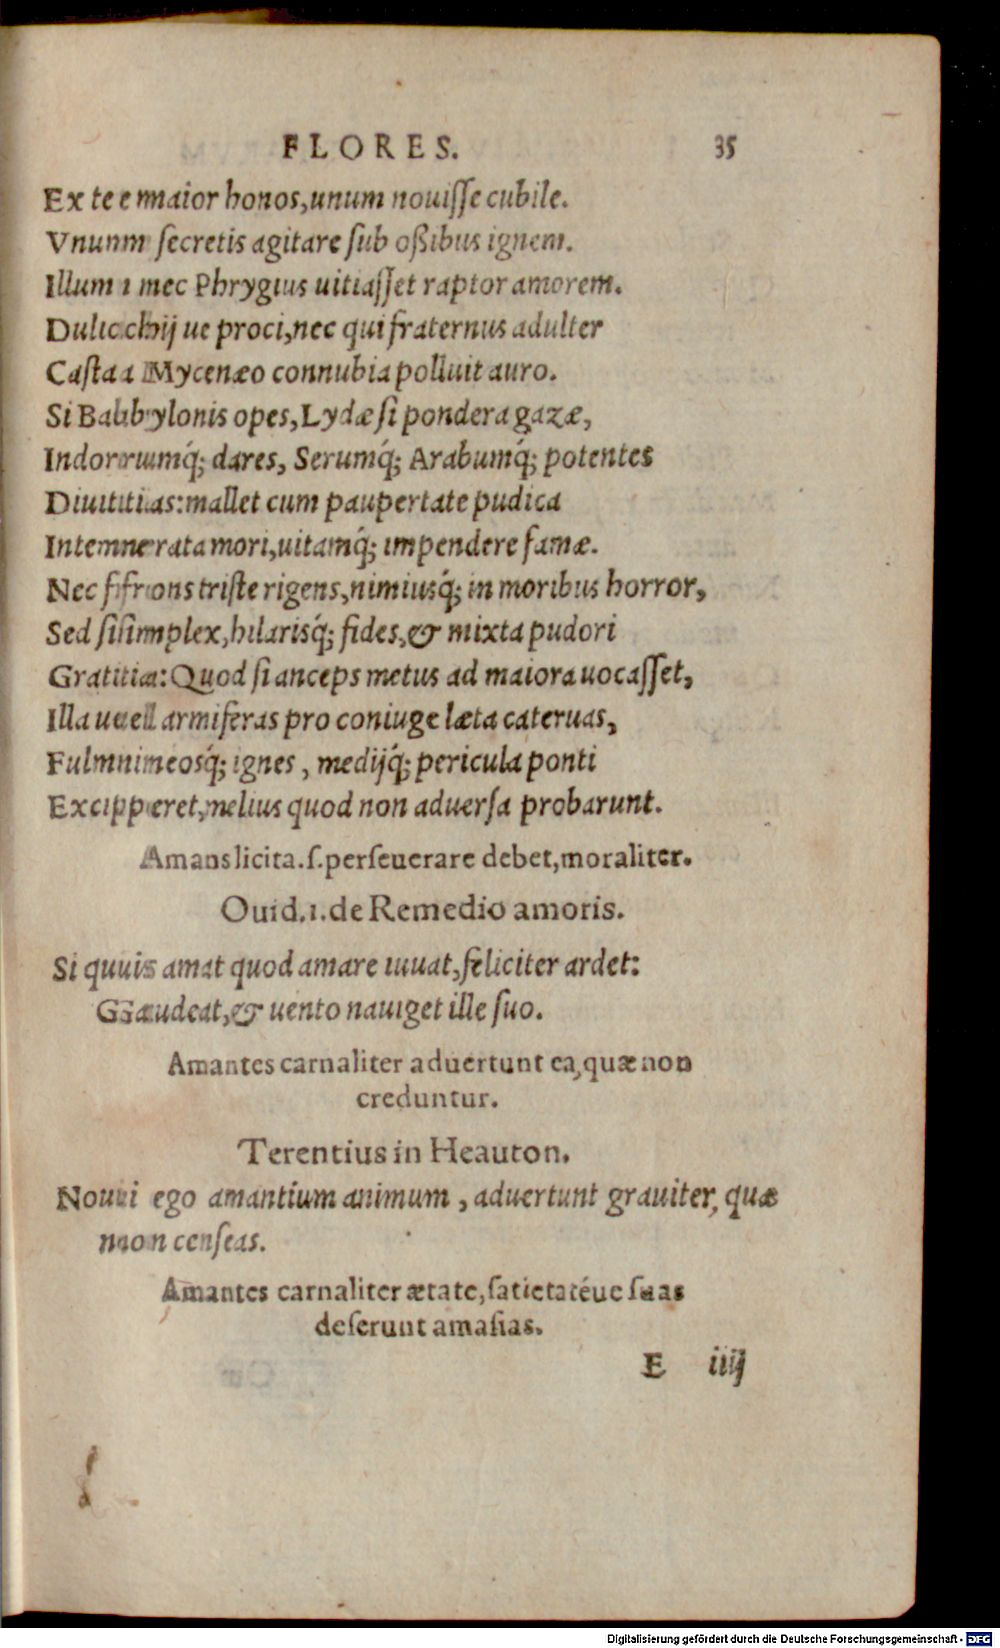 FLORES. 35
Ex te maior honos, unum nouiſſe cubile.
Vnum ſecretis agitare ſub oſſibus ignem.
Illum nec Phrygius uitiaſſet raptor amorem.
Dulichij ue proci, nec qui fraternus adulter
Caſta Mycenæo connubia polluit auro.
Si Babylonis opes, Lydæ ſi pondera gazæ,
Indorumq́; dares, Serumq́; Arabumq́; potentes
Diuitias: mallet cum paupertate pudica
Intemerata mori, uitamq́; impendere famæ.
Nec frons triſte rigens, nimiusq́; in moribus horror,
Sed ſimplex, hilarisq́; fides, & mixta pudori
Gratia: Quod ſi anceps metus ad maiora uocaſſet,
Illa uel armiferas pro coniuge læta cateruas,
Fulmineosq́; ignes, medijq́; pericula ponti
Exciperet, melius quod non aduerſa probarunt.
Amans licita .ſ. perſeuerare debet, moraliter.
Ouid. 1. de Remedio amoris.
Si quis amat quod amare iuuat, feliciter ardet:
Gaudeat, & uento nauiget ille ſuo.
Amantes carnaliter aduertunt ea, quæ non
creduntur.
Terentius in Heauton.
Noui ego amantium animum, aduertunt grauiter, quæ
non cenſeas.
Amantes carnaliter ætate, ſatietatéue ſuas
deſerunt amaſias.
E iiij
Digitalisierung gefördert durch die Deutsche Forschungsgemeinschaft - DFG